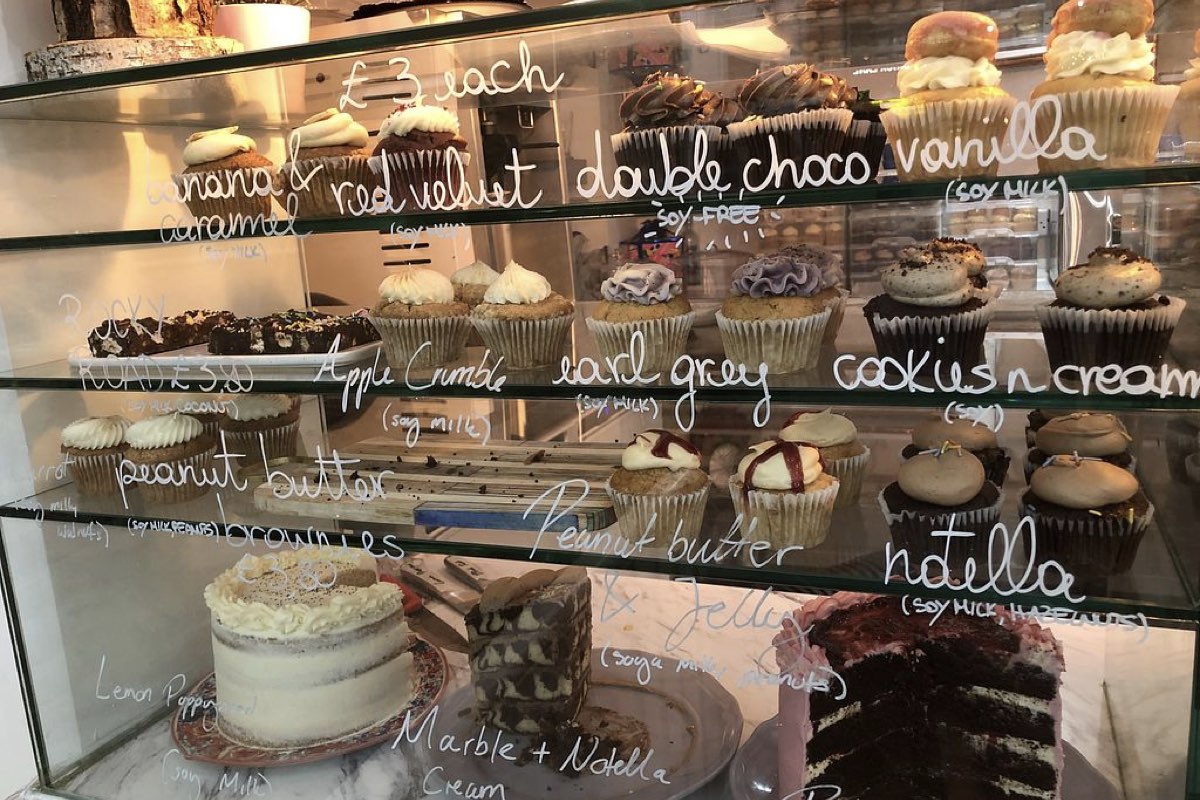 £3 each
banana & caramel
(SOY MILK)
red velvet
(SOY MILK)
double choco
SOY FREE
vanilla
(SOY MILK)
ROCKY
ROAD £3,80
(SOY MILK, COCONUT)
Apple Crumble
(soy milk)
earl grey
(SOY MILK)
cookies n cream
(SOY)
walnuts)
peanut butter
brownies
(SOY MILK, PEANUTS)
£3.80
Peanut butter
& Jelly
(soya milk, peanuts)
notella
(SOY MILK, HAZELNUTS)
Lemon Poppyseed
(Soy Milk)
Marble + Notella
Cream